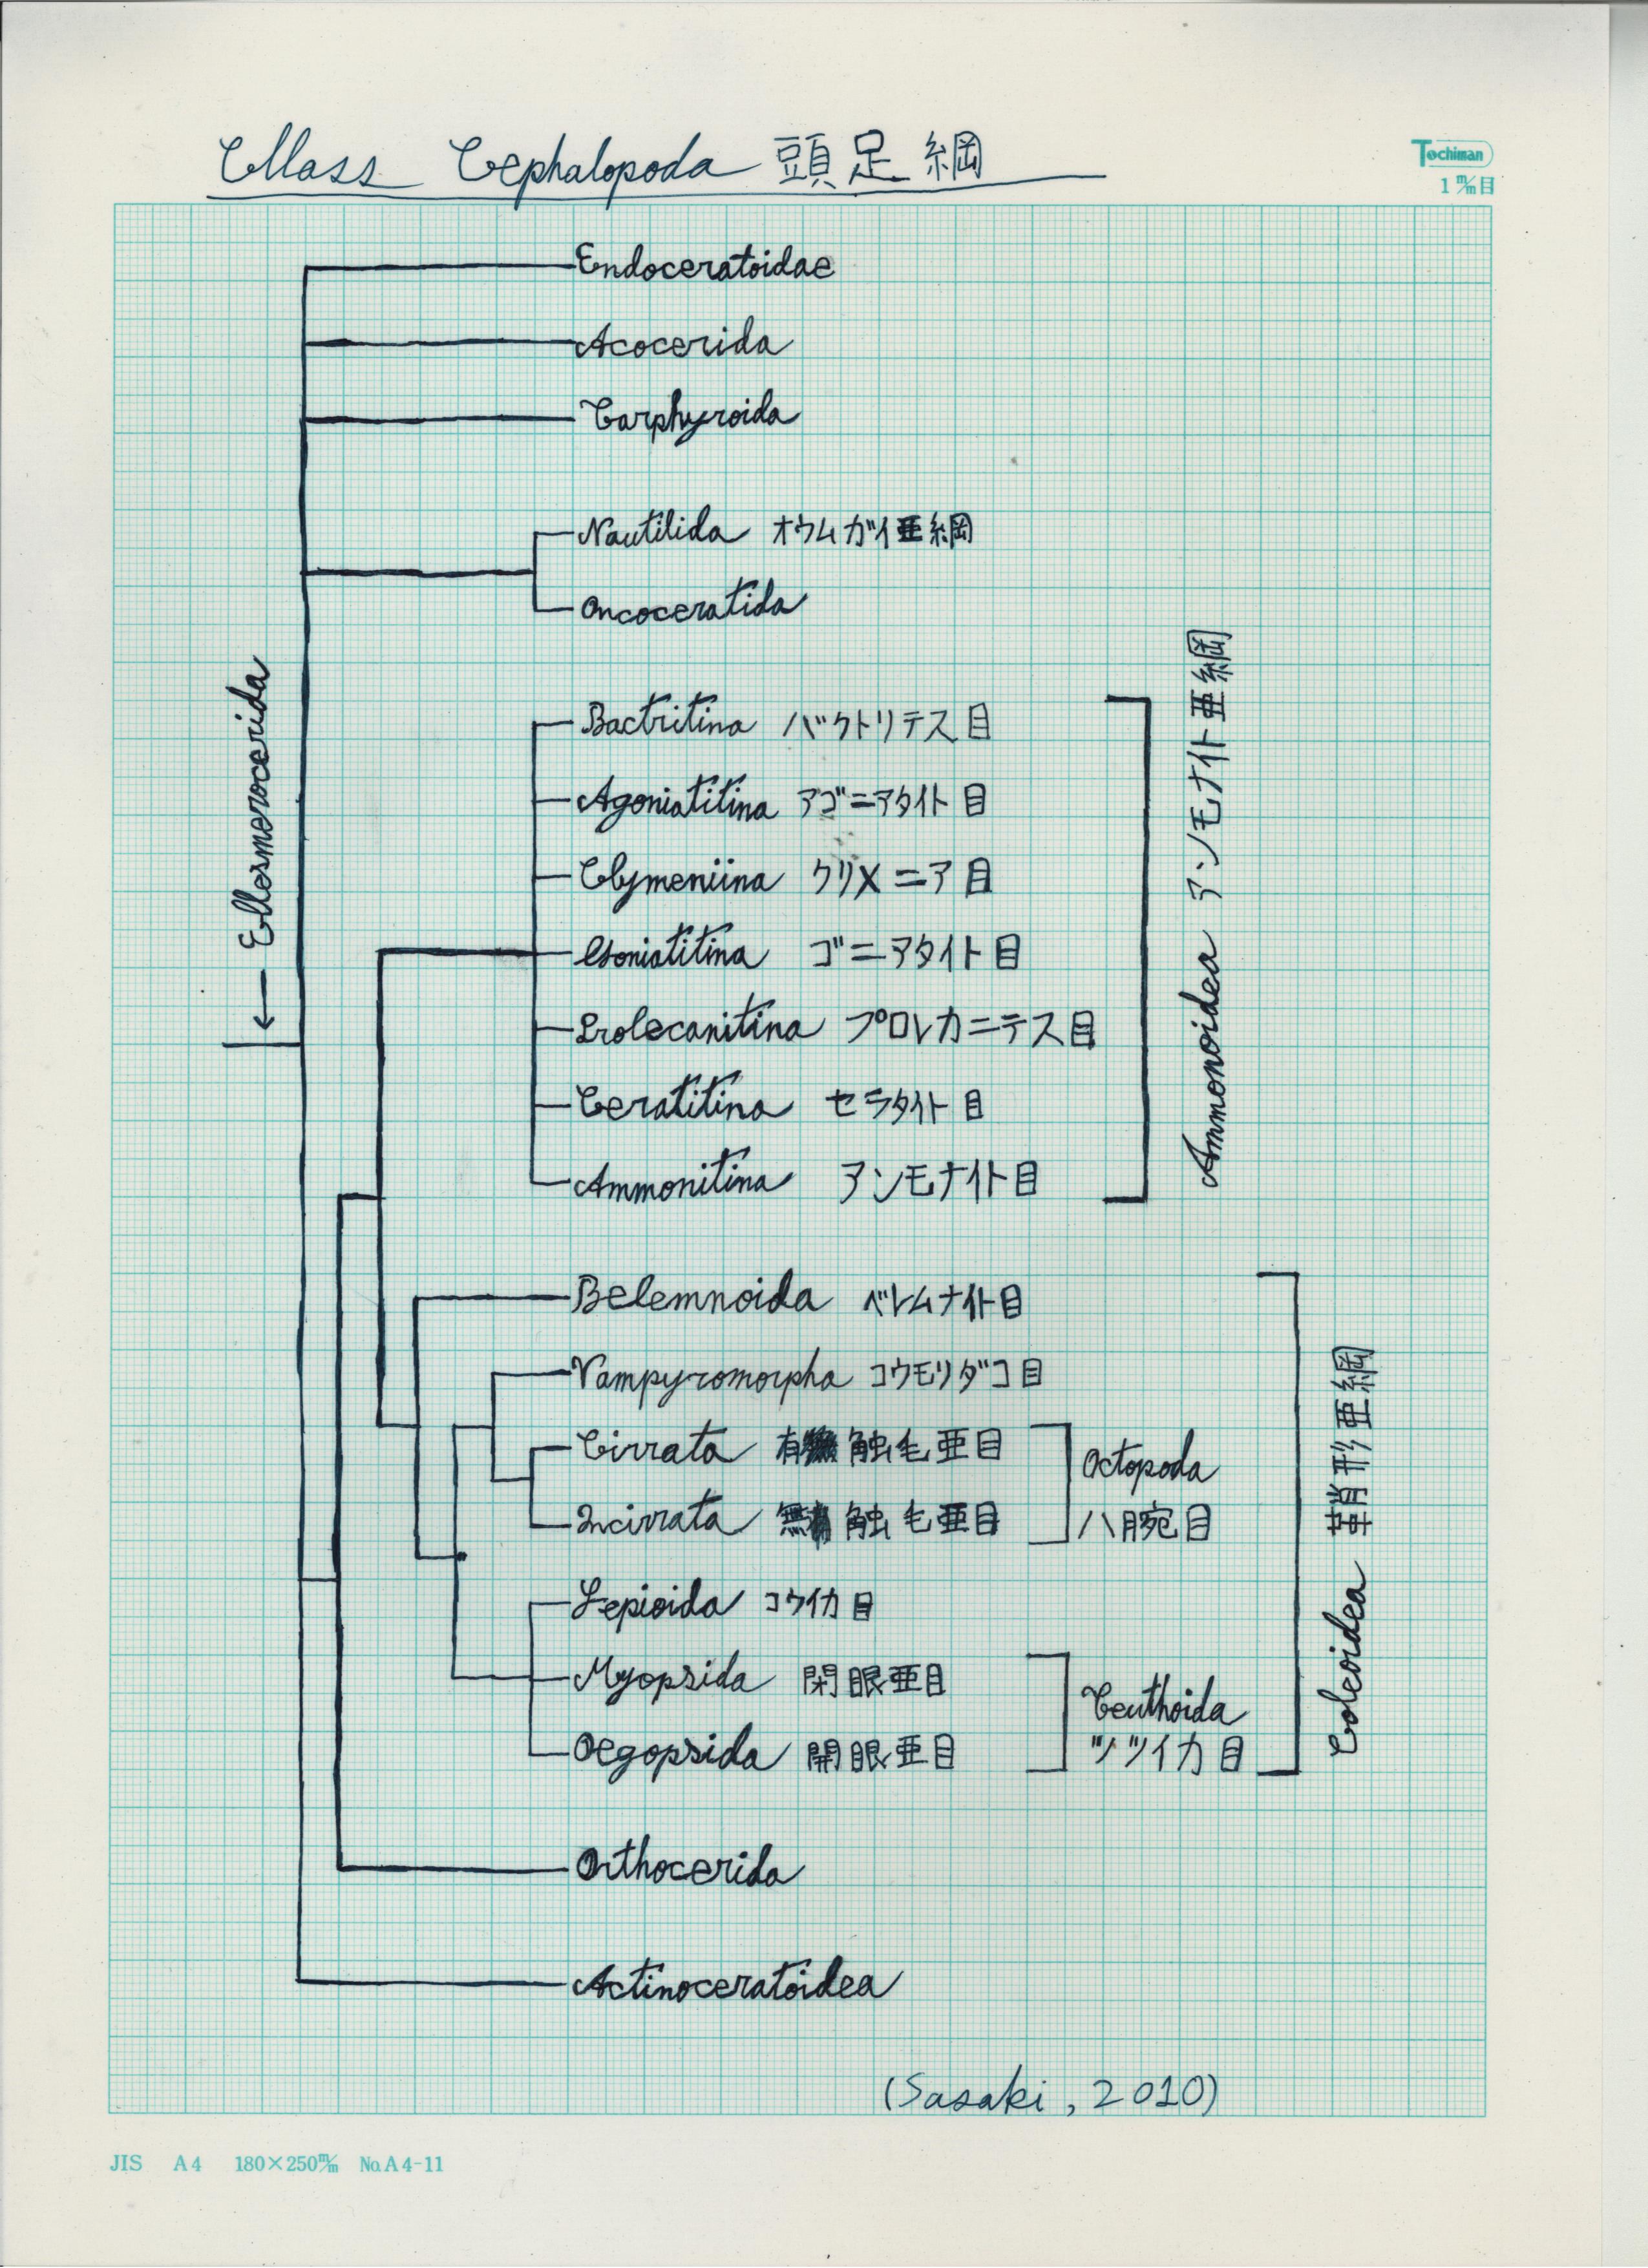 Class Cephalopoda 頭足綱
Tochiman
1 m/m目
Endoceratoidae
Acocerida
Tarphyroida
Nautilida オウムガイ亜綱
Oncoceratida
← Ellesmerocerida
Bactritina バクトリテス目
Agoniatitina アゴニアタイト目
Clymeniina クリメニア目
Goniatitina ゴニアタイト目
Prolecanitina プロレカニテス目
Ceratitina セラタイト目
Ammonitina アンモナイト目
Ammonoidea アンモナイト亜綱
Belemnoida ベレムナイト目
Vampyromorpha コウモリダコ目
Cirrata 有触毛亜目
Incirrata 無触毛亜目
Octopoda
八腕目
Sepioida コウイカ目
Myopsida 閉眼亜目
Oegopsida 開眼亜目
Teuthoida
ツツイカ目
Coleoidea 鞘形亜綱
Orthocerida
Actinoceratoidea
(Sasaki, 2010)
JIS A4 180×250m/m No.A4-11